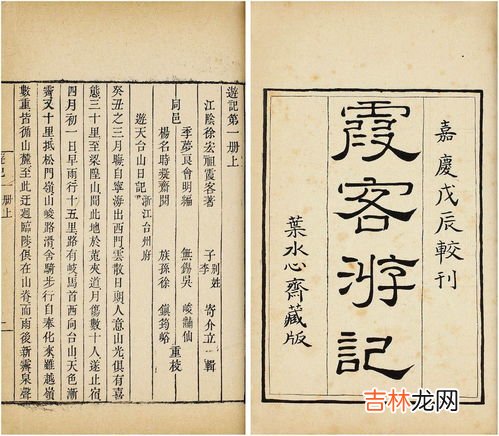 嘉慶戊辰較刊
霞客游記
葉水心齋藏版
遊記第一册上
江陰徐宏祖霞客著 子李 別姓 寄介立 輯
同邑
季夢良會明編 無錫吳 峻
楊名時凝齋閱 族孫徐 鎮筠峪
重校
遊天台山日記 浙江台州府
癸丑之三月晦自寧海出西門雲散日朗人意山光俱有喜
態三十里至梁隍山聞此地於菟夾道月傷數十人遂止宿
四月初一日早雨行十五里路有岐馬首西向台山天色漸
霽又十里抵松門嶺山峻路滑舍騎步行自奉化來雖越嶺
數重皆循山麓至此迂迴臨陟俱在山脊而雨後新霽泉聲
册上
吉林龙网